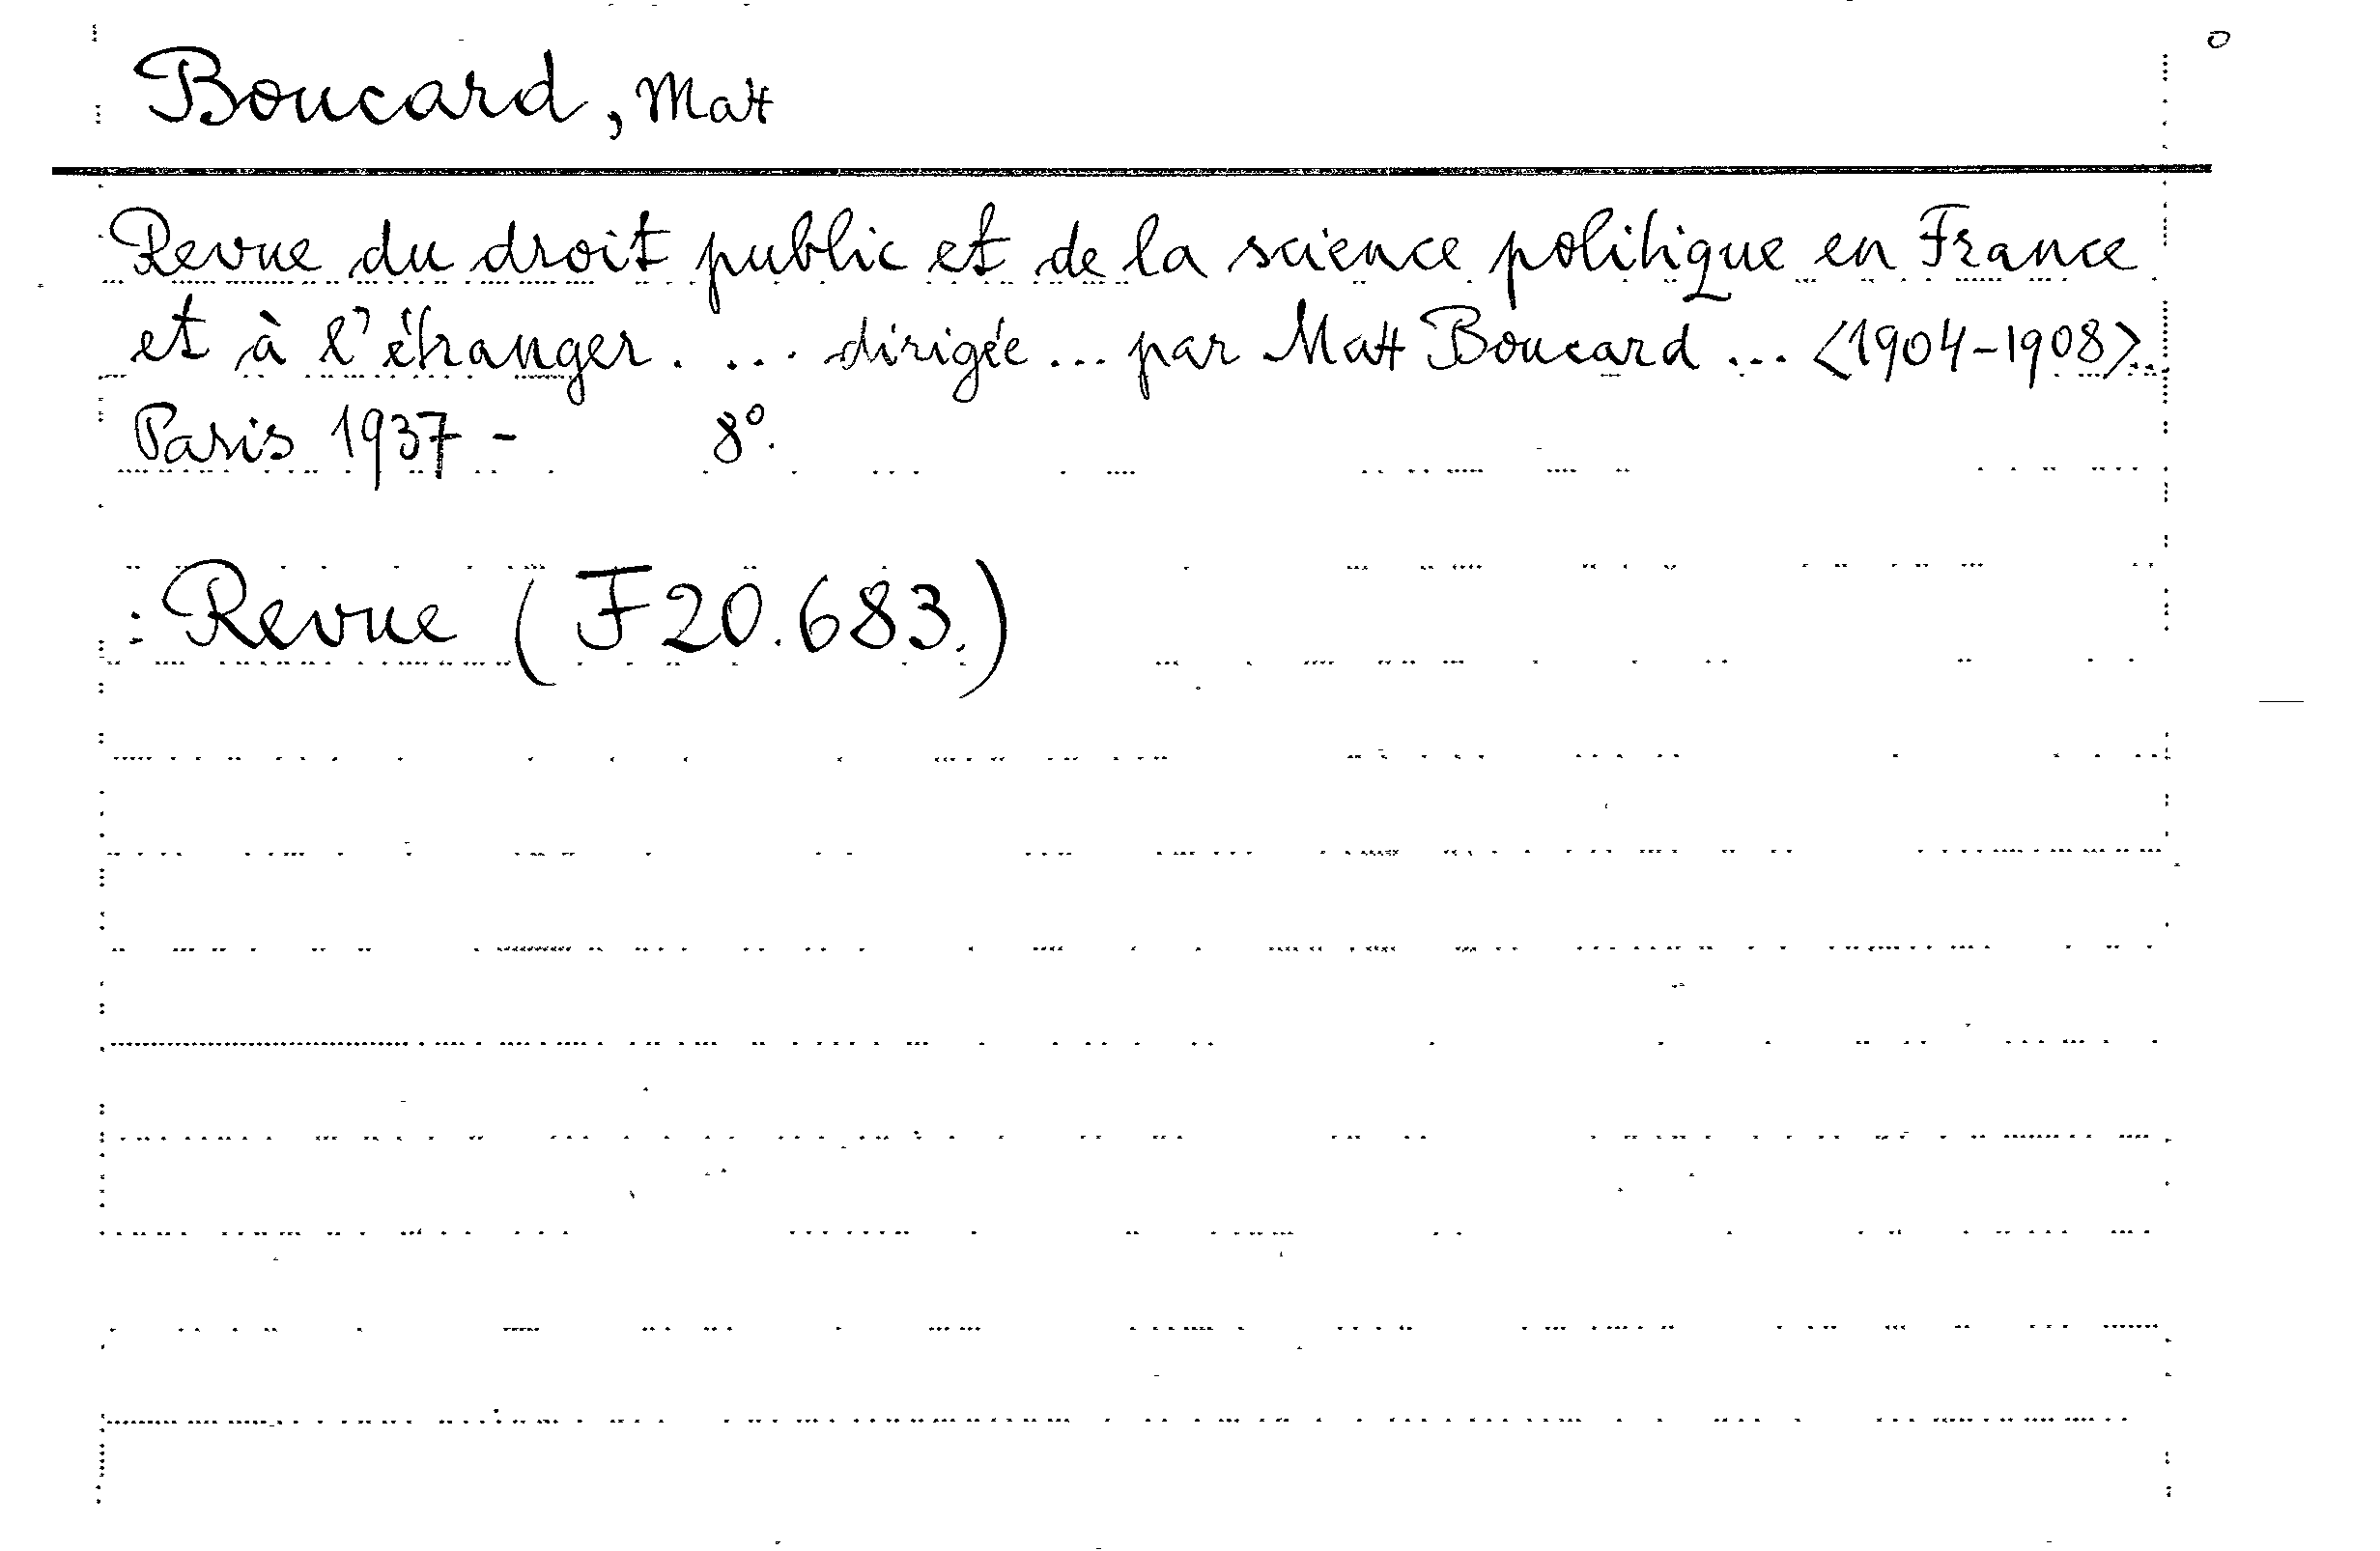 Boucard, Matt
Revue du droit public et de la science politique en France
et à l'étranger. ... dirigée ... par Matt Boucard ... <1904-1908>..
Paris 1937 - 8°.
: Revue (F 20.683.)